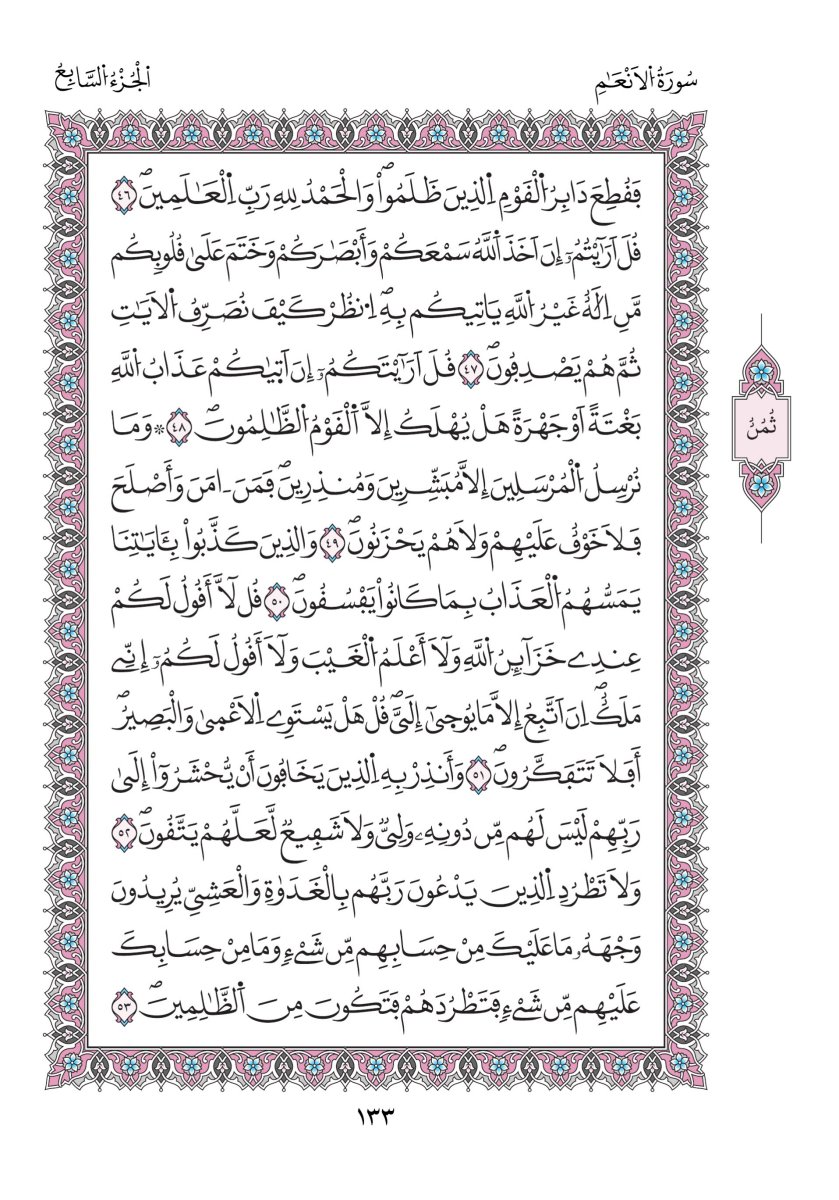 سُورَةُ الْأَنْعَٰمِ
الْجُزْءُ السَّابِعُ
فَقُطِعَ دَابِرُ اُ۬لْقَوْمِ اِ۬لذِينَ ظَلَمُواْۖ وَالْحَمْدُ لِلهِ رَبِّ اِ۬لْعَٰلَمِينَۖ ٤٦
قُلَ اَرَٰٓيْتُمُۥٓ إِنَ اَخَذَ اَ۬للَّهُ سَمْعَكُمْ وَأَبْصَٰرَكُمْ وَخَتَمَ عَلَىٰ قُلُوبِكُم
مَّنِ اِلَٰهٌ غَيْرُ اُ۬للَّهِ يَاتِيكُم بِهِۖ اِ۟نظُرْ كَيْفَ نُصَرِّفُ اُ۬لَايَٰتِ
ثُمَّ هُمْ يَصْدِفُونَۖ ٤٧ قُلَ اَرَٰٓيْتَكُمُۥٓ إِنَ اَت۪يٰكُمْ عَذَابُ اُ۬للَّهِ
بَغْتَةً اَوْ جَهْرَةً هَلْ يُهْلَكُ إِلَّا اَ۬لْقَوْمُ اُ۬لظَّٰلِمُونَۖ ٤٨ ۞ وَمَا
نُرْسِلُ اُ۬لْمُرْسَلِينَ إِلَّا مُبَشِّرِينَ وَمُنذِرِينَۖ فَمَنَ اٰمَنَ وَأَصْلَحَ
فَلَا خَوْفٌ عَلَيْهِمْ وَلَا هُمْ يَحْزَنُونَۖ ٤٩ وَالذِينَ كَذَّبُواْ بِـَٔايَٰتِنَا
يَمَسُّهُمُ اُ۬لْعَذَابُ بِمَا كَانُواْ يَفْسُقُونَۖ ٥٠ قُل لَّآ أَقُولُ لَكُمْ
عِندِے خَزَآئِنُ اُ۬للَّهِ وَلَآ أَعْلَمُ اُ۬لْغَيْبَ وَلَآ أَقُولُ لَكُمُۥٓ إِنِّے
مَلَكٌۖ اِنَ اَتَّبِعُ إِلَّا مَا يُوح۪يٰٓ إِلَيَّۖ قُلْ هَلْ يَسْتَوِے اِ۬لَاعْم۪يٰ وَالْبَصِيرُۖ
أَفَلَا تَتَفَكَّرُونَۖ ٥١ وَأَنذِرْ بِهِ اِ۬لذِينَ يَخَافُونَ أَنْ يُّحْشَرُوٓاْ إِلَىٰ
رَبِّهِمْ لَيْسَ لَهُم مِّن دُونِهِۦ وَلِيٌّ وَلَا شَفِيعٌ لَّعَلَّهُمْ يَتَّقُونَۖ ٥٢
وَلَا تَطْرُدِ اِ۬لذِينَ يَدْعُونَ رَبَّهُم بِالْغَدَوٰةِ وَالْعَشِيِّ يُرِيدُونَ
وَجْهَهُۥ مَا عَلَيْكَ مِنْ حِسَابِهِم مِّن شَےْءٍ وَمَا مِنْ حِسَابِكَ
عَلَيْهِم مِّن شَےْءٍ فَتَطْرُدَهُمْ فَتَكُونَ مِنَ اَ۬لظَّٰلِمِينَۖ ٥٣
ثُمُنُ
١٣٣